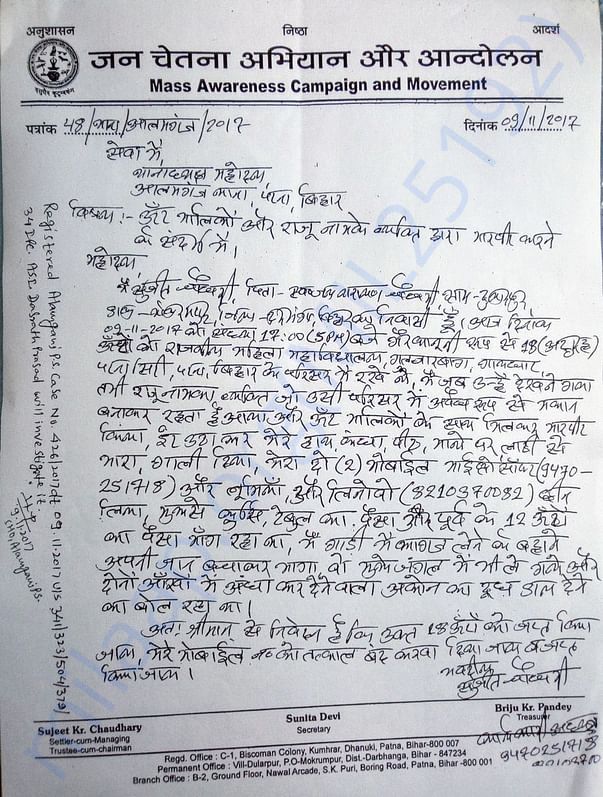 अनुशासन निष्ठा आदर्श
जन चेतना अभियान और आन्दोलन
Mass Awareness Campaign and Movement
पत्रांक 48/थाना/आलमगंज/2017 दिनांक 09/11/2017
सेवा में,
थानाध्यक्ष महोदय
आलमगंज थाना, पटना, बिहार
विषय:- ऊँट मालिकों और राजू नामके व्यक्ति द्वारा मारपीट करने
के संदर्भ में।
महोदय,
मैं सुजीत चौधरी, पिता-
निवासी हूँ। आज दिनांक
09-11-2017 को संध्या 17:00 (5PM) बजे गैरकानूनी रूप से 18 (अट्ठारह)
ऊँटों को राजकीय महिला महाविद्यालय, गुलजारबाग, गायघाट,
पटना सिटी, पटना, बिहार के परिसर में रखे थे, मैं जब उन्हें देखने गया
तभी राजू नामका व्यक्ति जो उसी परिसर में अवैध रूप से मकान
बनाकर रहता है आया, और ऊँट मालिकों के साथ मिलकर मारपीट
किया, ईंट उठा कर मेरे हाथ कंधा पीठ, माथे पर लाठी से
मारा, गाली दिया, मेरा दो (2) मोबाईल (9470-
251718) और और लिनोवो (8210370082) छीन
लिया, मुझसे कुर्सी, टेबुल का पैसा और पूर्व के 12 ऊँटों
का पैसा माँग रहा था, मैं गाडी में कागज लेने के बहाने
अपनी जान बचाकर भागा, वो मुझे जंगल में भी ले गये और
दोनों आँखों में अंधा कर देने वाला अकोन का दूध डाल देने
का बोल रहा था।
अतः श्रीमान से निवेदन है कि उक्त 18 ऊँटों को जप्त किया
जाय, मेरे मोबाईल नं० को तत्काल बंद करवा दिया जाय व जप्त
किया जाय।
भवदीय
सुजीत चौधरी
Registered Alamganj P.S. Case No. 426/2017 dt 09.11.2017 U/S 341/323/504/379/
34 IPC. ASI Dasrath Prasad will investigate it
9.11.2017
SHO, Alamganj PS.
Sujeet Kr. Chaudhary
Settler-cum-Managing
Trustee-cum-chairman
Sunita Devi
Secretary
Briju Kr. Pandey
Treasurer
9470251718
Regd. Office : C-1, Biscoman Colony, Kumhrar, Dhanuki, Patna, Bihar-800 007
Permanent Office : Vill-Dularpur, P.O-Mokrumpur, Dist.-Darbhanga, Bihar - 847234
Branch Office : B-2, Ground Floor, Nawal Arcade, S.K. Puri, Boring Road, Patna, Bihar -800 001